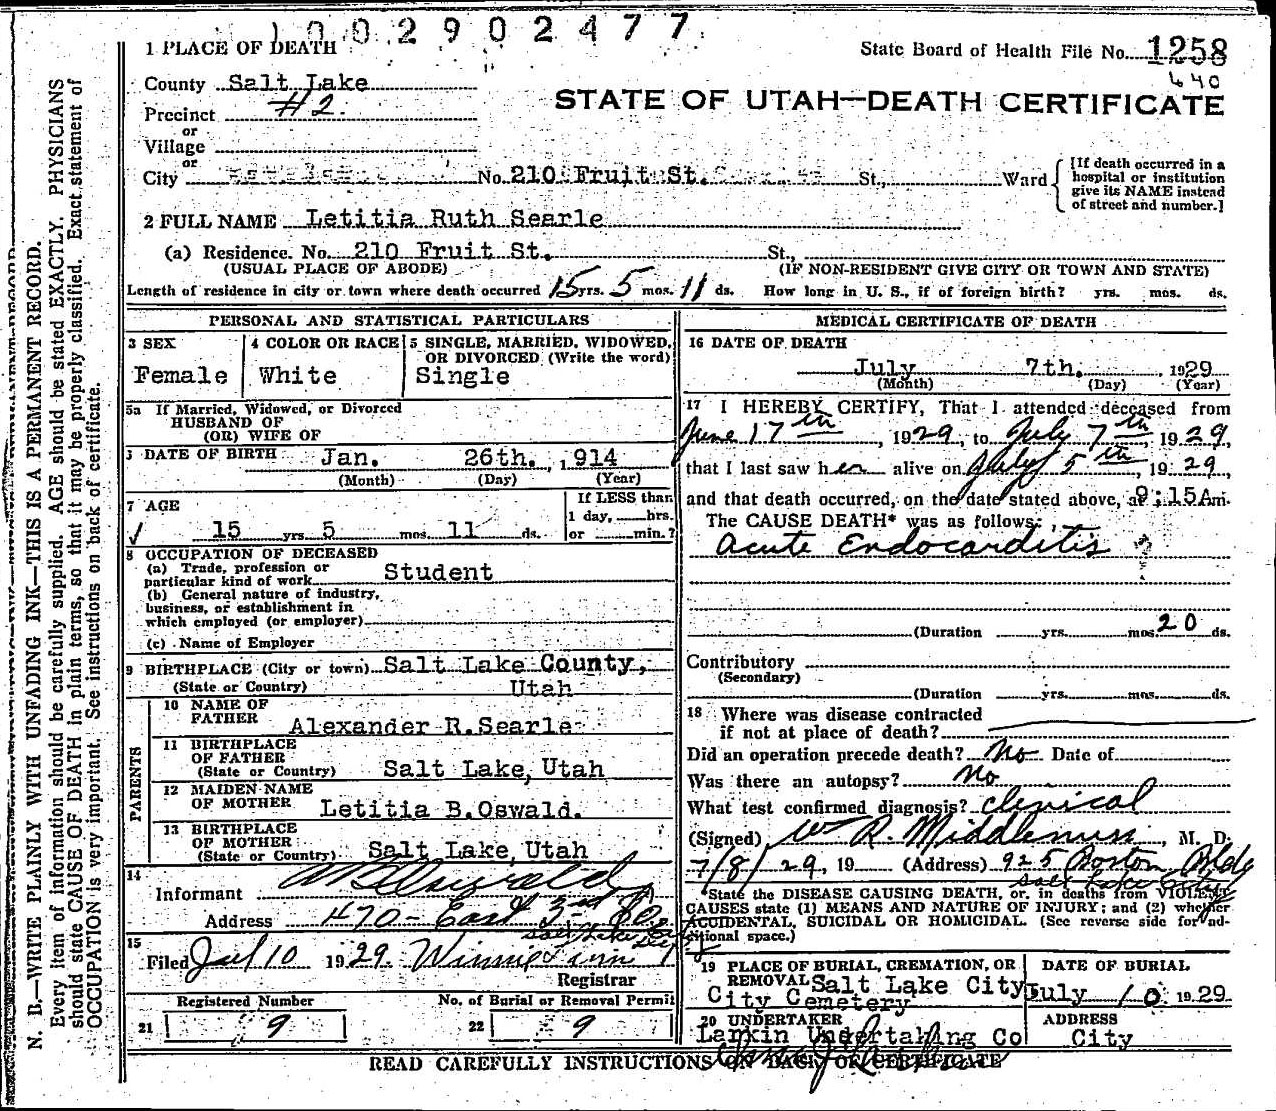 1002902477
1 PLACE OF DEATH
State Board of Health File No. 1258
640
County Salt Lake
STATE OF UTAH—DEATH CERTIFICATE
Precinct #2.
or
Village
or
City No. 210 Fruit St. St., Ward
[If death occurred in a
hospital or institution
give its NAME instead
of street and number.]
2 FULL NAME Letitia Ruth Searle
(a) Residence. No. 210 Fruit St. St.,
(USUAL PLACE OF ABODE) (IF NON-RESIDENT GIVE CITY OR TOWN AND STATE)
Length of residence in city or town where death occurred 15 yrs. 5 mos. 11 ds. How long in U. S., if of foreign birth? yrs. mos. ds.
PERSONAL AND STATISTICAL PARTICULARS
3 SEX
Female
4 COLOR OR RACE
White
5 SINGLE, MARRIED, WIDOWED,
OR DIVORCED (Write the word)
Single
5a If Married, Widowed, or Divorced
HUSBAND OF
(OR) WIFE OF
DATE OF BIRTH Jan. 26th. , 1914
(Month) (Day) (Year)
7 AGE
If LESS than
1 day, hrs.
or min.?
15 yrs 5 mos. 11 ds.
8 OCCUPATION OF DECEASED
(a) Trade, profession or
particular kind of work Student
(b) General nature of industry,
business, or establishment in
which employed (or employer)
(c) Name of Employer
9 BIRTHPLACE (City or town) Salt Lake County,
(State or Country) Utah
PARENTS
10 NAME OF
FATHER Alexander R. Searle
11 BIRTHPLACE
OF FATHER
(State or Country) Salt Lake, Utah
12 MAIDEN NAME
OF MOTHER Letitia B. Oswald.
13 BIRTHPLACE
OF MOTHER
(State or Country) Salt Lake, Utah
14
Informant
Address 470 - East 3rd So
Salt Lake City
15
Filed Jul 10 1929. Winnie
Registrar
Registered Number
21 9
No. of Burial or Removal Permit
22 9
MEDICAL CERTIFICATE OF DEATH
16 DATE OF DEATH
July 7th. , 1929
(Month) (Day) (Year)
17 I HEREBY CERTIFY, That I attended deceased from
June 17th, 1929, to July 7th, 1929,
that I last saw her alive on July 5th, 1929
and that death occurred, on the date stated above, at 9:15Am.
The CAUSE DEATH* was as follows:
Acute Endocarditis
(Duration yrs. mos. 20 ds.
Contributory
(Secondary)
(Duration yrs. mos. ds.
18 Where was disease contracted
if not at place of death?
Did an operation precede death? No Date of
Was there an autopsy? No
What test confirmed diagnosis? clinical
(Signed) W R. Middlemiss, M. D.
7/8/29, 19 (Address) 925 Boston Bldg
Salt Lake City
*State the DISEASE CAUSING DEATH, or, in deaths from VIOLENT
CAUSES state (1) MEANS AND NATURE OF INJURY; and (2) whether
ACCIDENTAL, SUICIDAL OR HOMICIDAL. (See reverse side for additional space.)
19 PLACE OF BURIAL, CREMATION, OR
REMOVAL Salt Lake City,
City Cemetery
DATE OF BURIAL
July 10 1929
20 UNDERTAKER
Larkin Undertaking Co
ADDRESS
City
READ CAREFULLY INSTRUCTIONS ON BACK OF CERTIFICATE
N. B.—WRITE PLAINLY WITH UNFADING INK—THIS IS A PERMANENT RECORD.
Every item of information should be carefully supplied. AGE should be stated EXACTLY. PHYSICIANS
should state CAUSE OF DEATH in plain terms, so that it may be properly classified. Exact statement of
OCCUPATION is very important. See instructions on back of certificate.